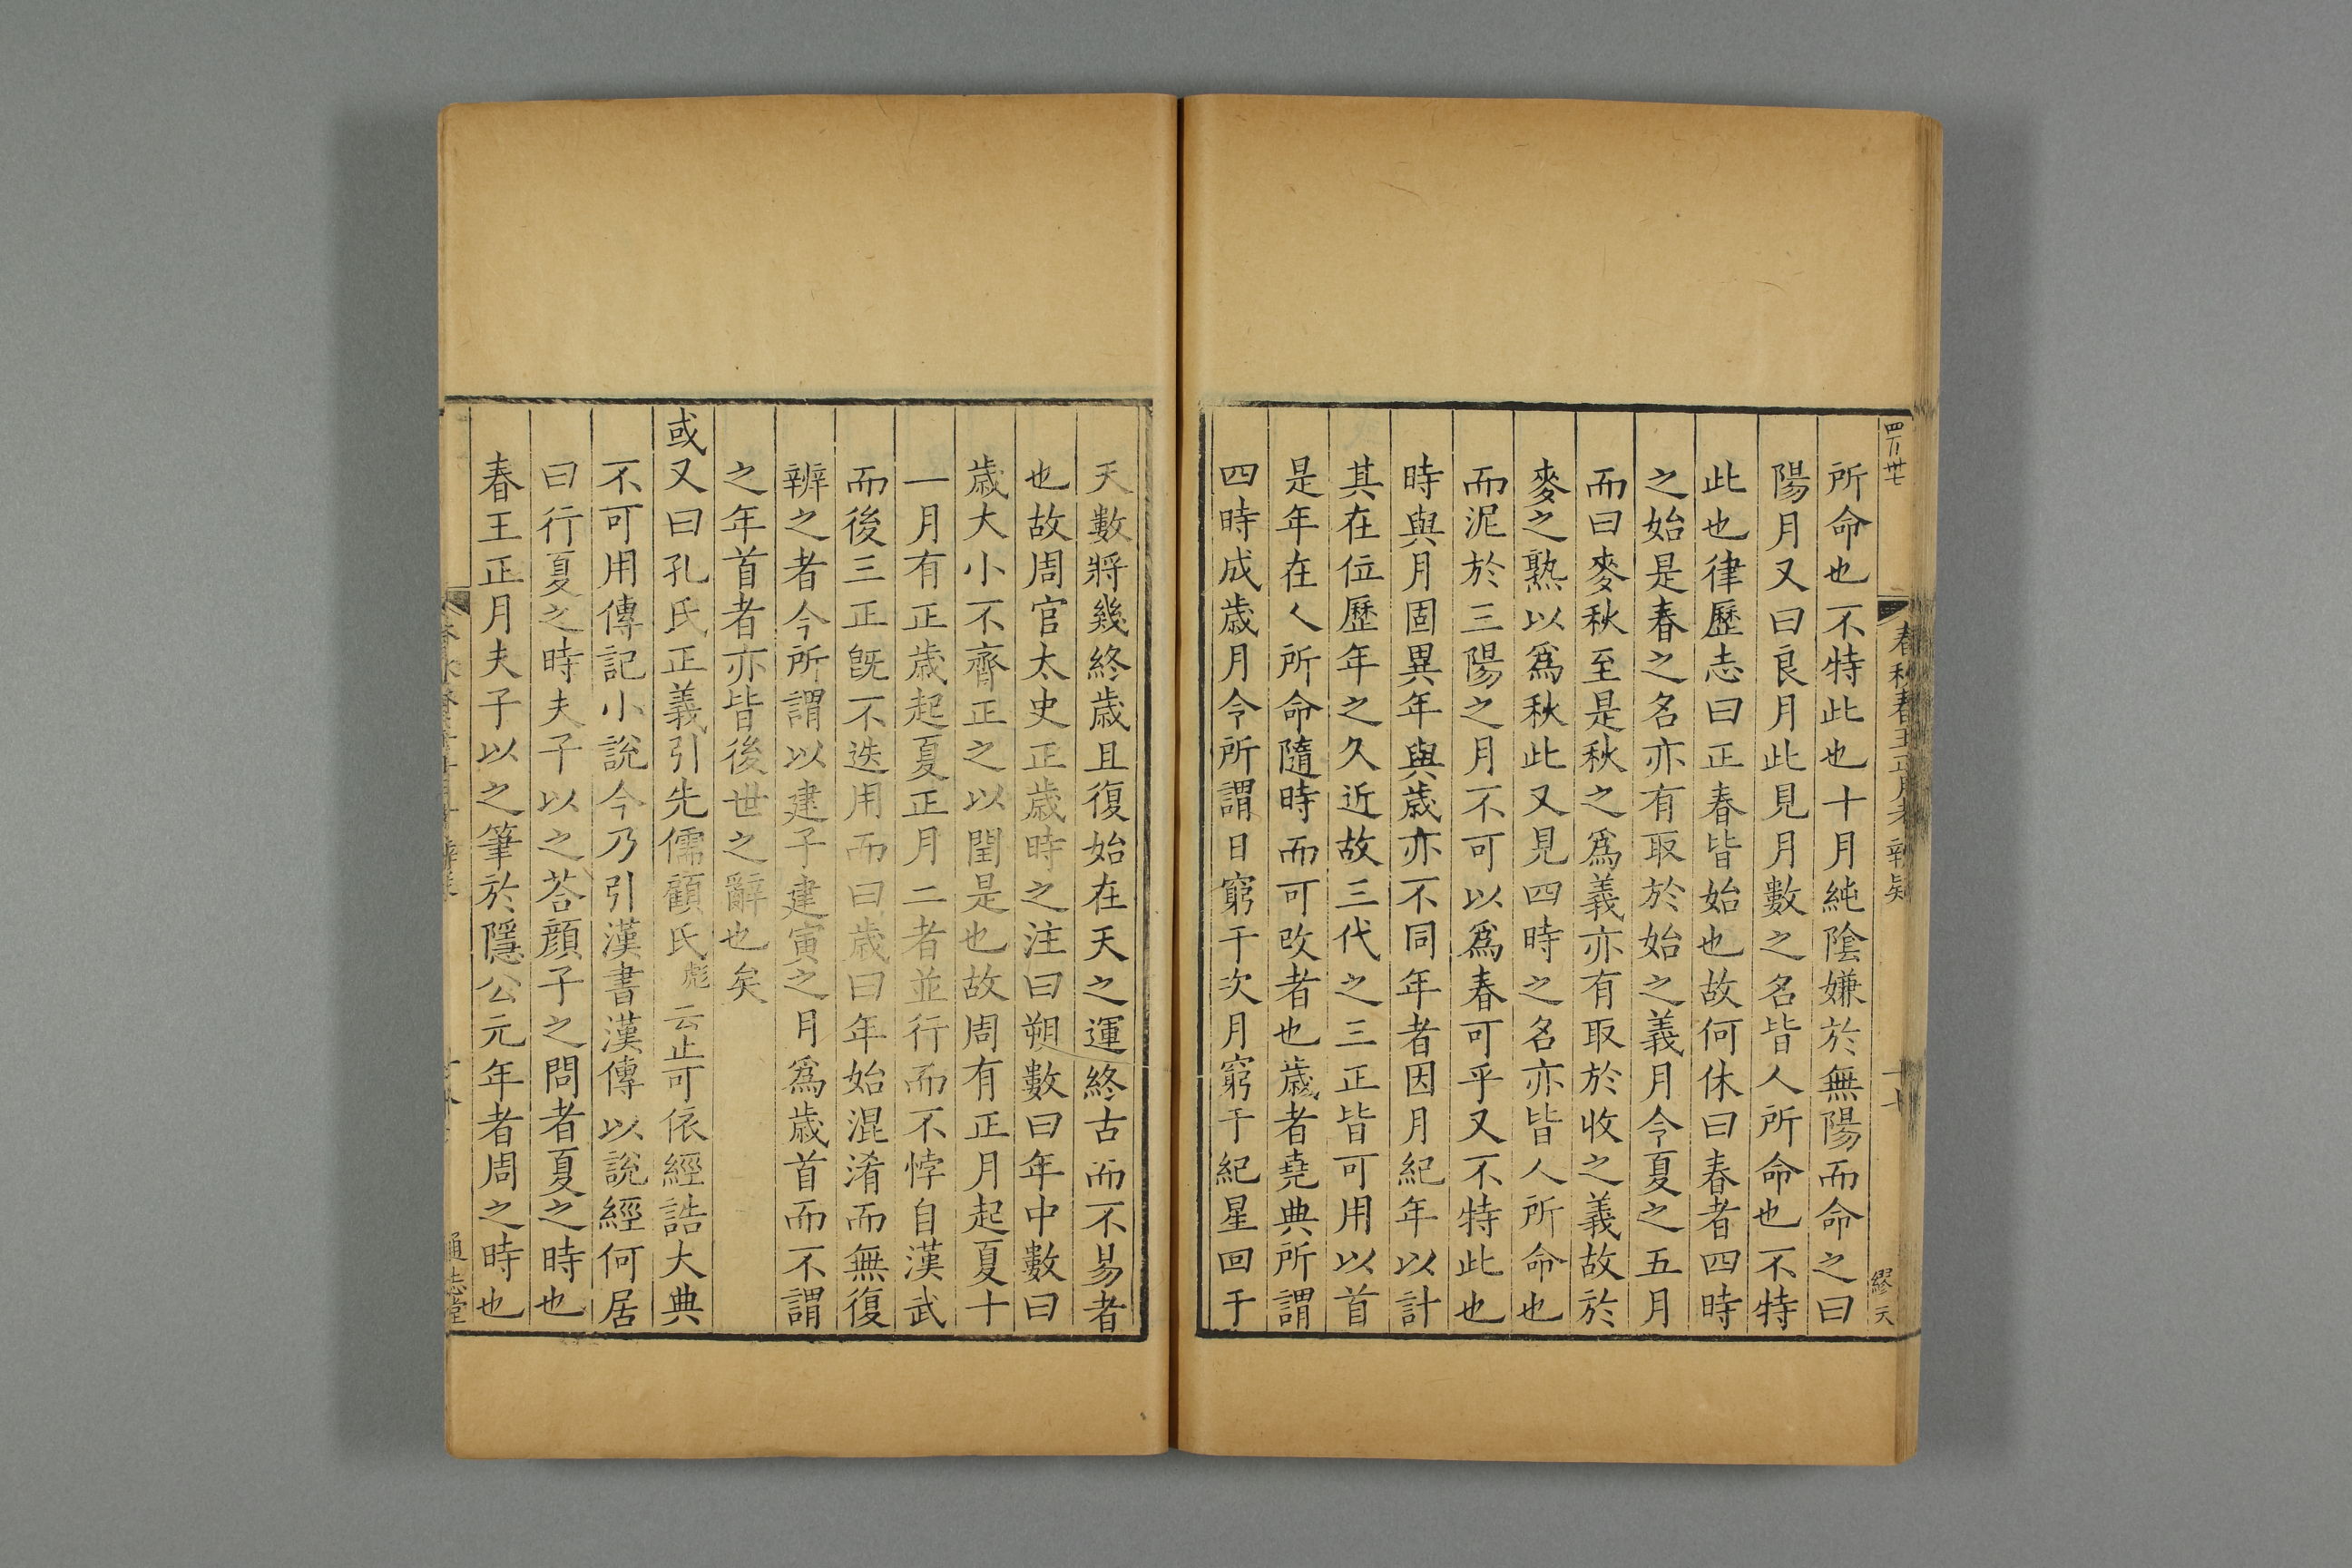 四百卅七
春秋春王正月考辨疑
繆天
所命也不特此也十月純陰嫌於無陽而命之曰
陽月又曰良月此見月數之名皆人所命也不特
此也律歷志曰正春皆始也故何休曰春者四時
之始是春之名亦有取於始之義月令夏之五月
而曰麥秋至是秋之爲義亦有取於收之義故於
麥之熟以爲秋此又見四時之名亦皆人所命也
而泥於三陽之月不可以爲春可乎又不特此也
時與月固異年與歲亦不同年者因月紀年以計
其在位歷年之久近故三代之三正皆可用以首
是年在人所命隨時而可改者也歲者堯典所謂
四時成歲月令所謂日窮于次月窮于紀星回于
天數將幾終歲且復始在天之運終古而不易者
也故周官太史正歲時之注曰朔數曰年中數曰
歲大小不齊正之以閏是也故周有正月起夏十
一月有正歲起夏正月二者並行而不悖自漢武
而後三正旣不迭用而曰歲曰年始混淆而無復
辨之者今所謂以建子建寅之月爲歲首而不謂
之年首者亦皆後世之辭也矣
或又曰孔氏正義引先儒顧氏彪云止可依經誥大典
不可用傳記小說今乃引漢書漢傳以說經何居
曰行夏之時夫子以之荅顏子之問者夏之時也
春王正月夫子以之筆於隱公元年者周之時也
通志堂